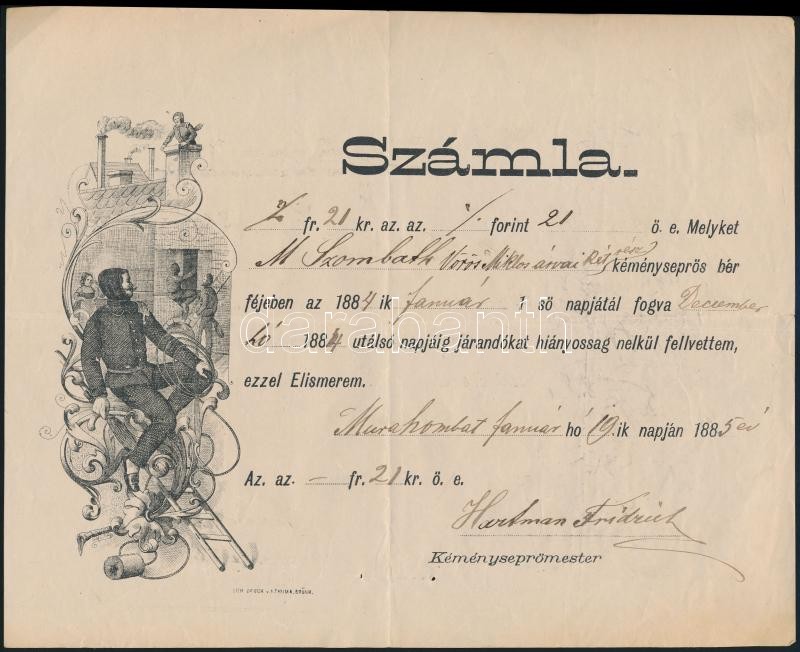 Számla.
fr. 21 kr. az. az. /. forint 21 ö. e. Melyket
M Szombath Vörös Miklos árvai Rét rész kéményseprös bér
féjeben az 1884 ik Január 1 sö napjátál fogva December
hó 1884 utélsó napjáig járandókat hiányossag nelkül fellvettem,
ezzel Elismerem.
Murahombat Január hó 19. ik napján 1885 év
Az. az. — fr. 21 kr. ö. e.
Hartman Fridrich
Kéményseprömester
DRUCK v. A. THUMA, BRÜNN.
darabanth.com